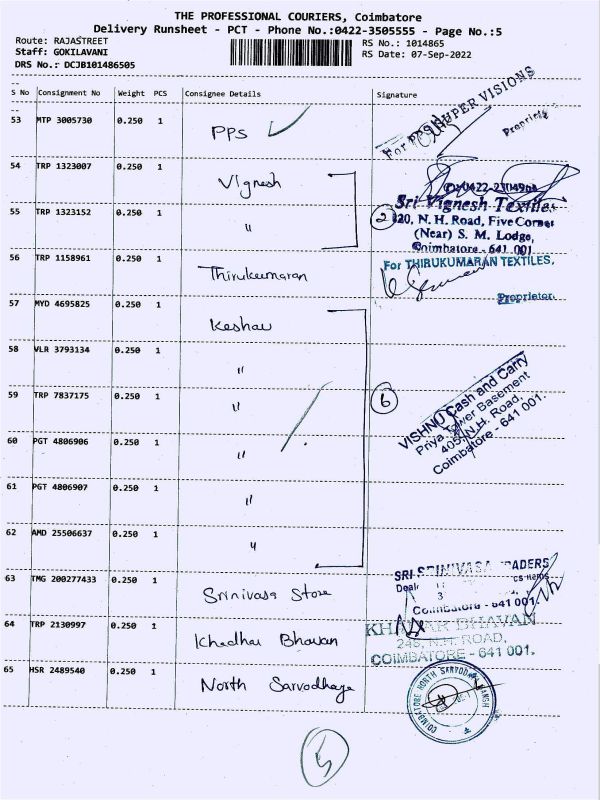 THE PROFESSIONAL COURIERS, Coimbatore
Delivery Runsheet - PCT - Phone No.:0422-3505555 - Page No.:5
Route: RAJASTREET
RS No.: 1014865
Staff: GOKILAVANI
RS Date: 07-Sep-2022
DRS No.: DCJB101486505
S No Consignment No Weight PCS Consignee Details Signature
53 MTP 3005730 0.250 1 PPS
For PPS SUPER VISIONS
54 TRP 1323007 0.250 1 Vignesh
Sri Vignesh Textiles
55 TRP 1323152 0.250 1 " 2
120, N. H. Road, Five Corner
(Near) S. M. Lodge,
Coimbatore - 641 001
56 TRP 1158961 0.250 1 Thirukumaran
For THIRUKUMARAN TEXTILES,
Proprietor
57 MYD 4695825 0.250 1 Keshav
58 VLR 3793134 0.250 1 "
59 TRP 7837175 0.250 1 " 6
VISHNU Cash and Carry
Priya Tower Basement
405, N.H. Road,
Coimbatore - 641 001.
60 PGT 4806906 0.250 1 "
61 PGT 4806907 0.250 1 "
62 AMD 25506637 0.250 1 "
63 TMG 200277433 0.250 1 Srinivasa Store
SRI SRINIVASA TRADERS
Coimbatore - 641 001
64 TRP 2130997 0.250 1 Khadhar Bhavan
BHAVAN
248, N.H. ROAD,
COIMBATORE - 641 001.
65 HSR 2489540 0.250 1 North Sarvodhaya
COIMBATORE NORTH SARVODAYA SANGH
5